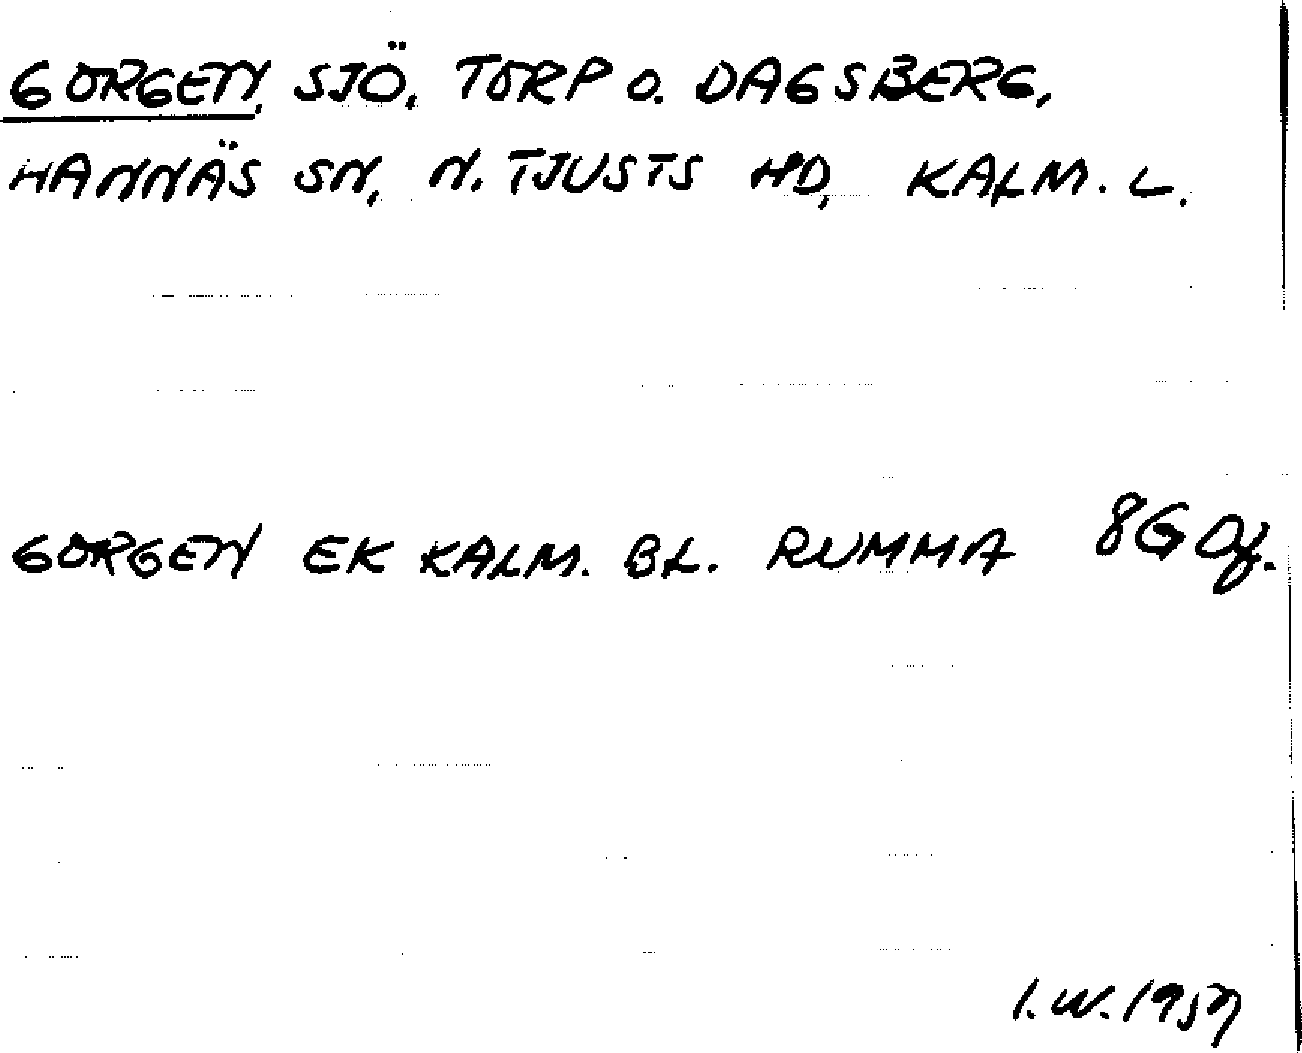 GORGEN, SJÖ, TORP O. DAGSBERG,
HANNÄS SN, N. TJUSTS HD, KALM. L.
GORGEN EK KALM. BL. RUMMA 8G Of.
I.W. 1957